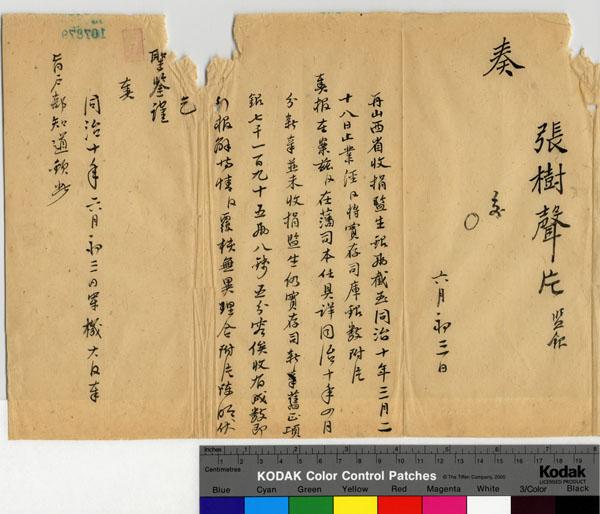 張樹聲片 監銀
奏
六月初三日
再山西省收捐監生銀兩截至同治十年三月二
十八日止業經臣將實存司庫銀數附片
奏報在案臣在藩司本任具詳同治十年四月
分新章並未收捐監生仍實存司新章舊正項
銀七千一百九十五兩八錢五分容俟收有成數即
行報解等情臣覆核無異理合附片陳明伏
乞
聖鑒謹
奏
同治十年六月初三日軍機大臣奉
旨戶部知道欽此
107879
Inches 1 2 3 4 5 6 7 8
Centimetres 1 2 3 4 5 6 7 8 9 10 11 12 13 14 15 16 17 18 19
KODAK Color Control Patches © The Tiffen Company, 2000
Kodak
LICENSED PRODUCT
Blue Cyan Green Yellow Red Magenta White 3/Color Black